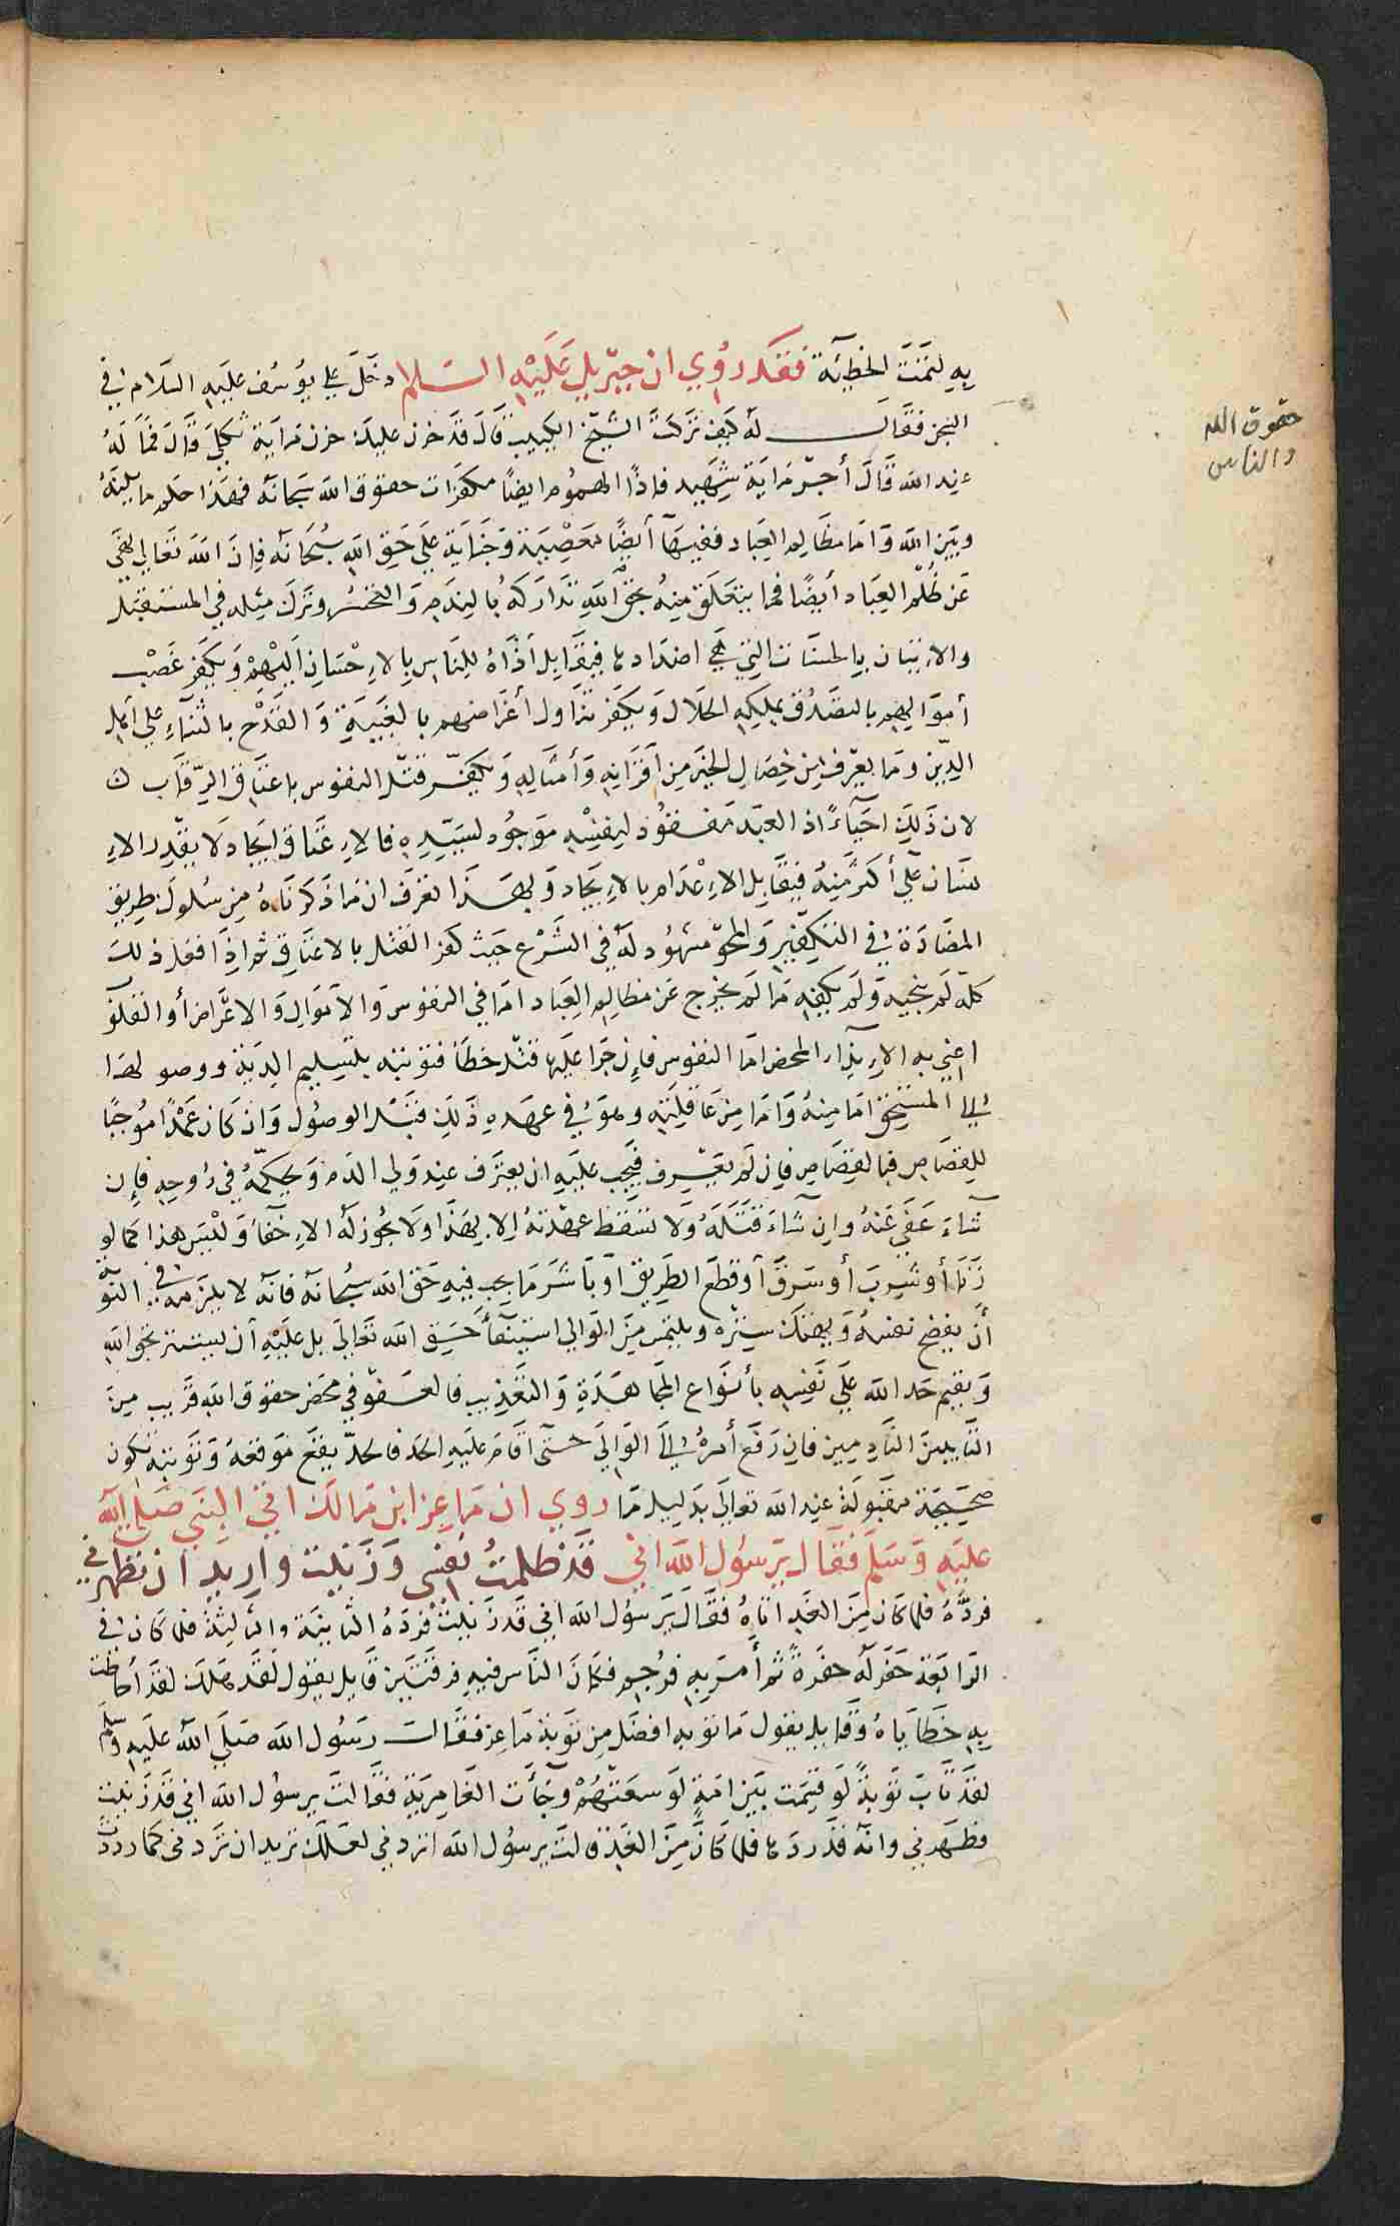 به لتمت الخطيئة فقد روي ان جبريل عليه السلام دخل على يوسف عليه السلام في
السجن فقال له كيف تركت الشيخ الكييب قال قد حزن عليك حزن مراية ثكلى قال فما له
عند الله قال أجر مراية شهيد فاذا الهموم ايضا مكفرات حقوق الله سبحانه فهذا حكم ما بينه
وبين الله واما مظالم العباد ففيها أيضا معصية وجناية على حق الله سبحانه فإن الله تعالى نهى
عن ظلم العباد أيضا فما يتعلق منه بحق الله تداركه بالندم والتحسر وترك مثله في المستقبل
والاتيان بالحسنات التي هي اضدادها فيقابل أذاه للناس بالاحسان اليهم ويكفر غصب
أموالهم بالتصدق بملكه الحلال ويكفر تناول أغراضهم بالغيبة والقدح بالثناء على اهل
الدين وما يعرف من خصال الخير من اقرانه وأمثاله ويكفر قتل النفوس باعتاق الرقاب
لان ذلك احياء اذ العبد مفقود لنفسه موجود لسيده فالاعتاق ايجاد لا يقدر الا
نسان على أكثر منه فيقابل الاعدام بالايجاد وبهذا تعرف ان ما ذكرناه من سلوك طريق
المضادة في التكفير والمحو مشهود له في الشرع حيث كفر القتل بالاعتاق ثم اذا فعل ذلك
كله لم ينجيه ولم يكفه ما لم يخرج عن مظالم العباد اما في النفوس والاموال والاعراض أو القلوب
اعني به الايذاء المحض اما النفوس فإن جرا عليها قتل خطأ فتوبته بتسليم الدية ووصولها
إلى المستحق اما منه واما من عاقلته وهو في عهده ذلك قبل الوصول وان كان عمدا موجبا
للقصاص فبالقصاص فان لم يعرف فيجب عليه ان يعترف عند ولي الدم ويحكمه في روحه فإن
شاء عفى عنه وان شاء قتله ولا تسقط عهدته الا بهذا ولا يجوز له الاخفا وليس هذا كما لو
زنا أو شرب أو سرق أو قطع الطريق او باشر ما يجب فيه حق الله سبحانه فانه لا يلزمه في التوبة
أن يفضح نفسه ويهتك ستره ويلتمس من الوالي استيفأ حق الله تعالى بل عليه أن يستتر بستر الله
ويقيم حد الله على نفسه بأنواع المجاهدة والتعذيب فالعفو في محض حقوق الله قريب من
التايبين النادمين فان رفع أمره إلى الوالي حتى اقام عليه الحد فالحد يقع موقعه وتوبته تكون
صحيحة مقبولة عند الله تعالى بدليل ما روي ان ماعز ابن مالك اتى النبي صلى الله
عليه وسلم فقال يرسول الله اني قد ظلمت نفسي وزنيت واريد ان تطهرني
فردّه فلما كان من الغد اتاه فقال يرسول الله اني قد زنيت فرده الثانية والثالثة فلما كان في
الرابعة حفر له حفرة ثم أمر به فرجم فكان الناس فيه فرقتين قايل يقول لقد هلك لقد أحاطت
به خطاياه وقايل يقول ما توبه افضل من توبة ماعز فقال رسول الله صلى الله عليه وسلم
لقد تاب توبة لو قسمت بين امة لوسعتهم وجأت الغامرية فقالت يرسول الله اني قد زنيت
فطهرني وانه قد ردها فلما كان من الغد قالت يرسول الله اتردني لعلك تريد ان تردني كما رددت
حقوق الله
والناس